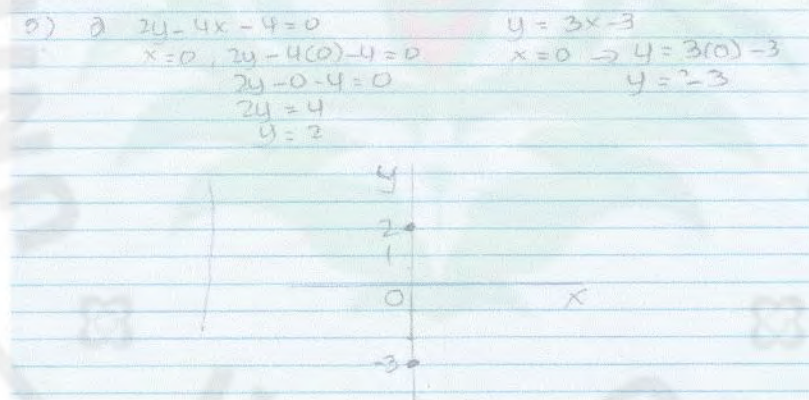 5) a 2y - 4x - 4 = 0
x = 0, 2y - 4(0) - 4 = 0
2y - 0 - 4 = 0
2y = 4
y = 2
y = 3x - 3
x = 0 → y = 3(0) - 3
y = -3
y
2
1
0 x
-3